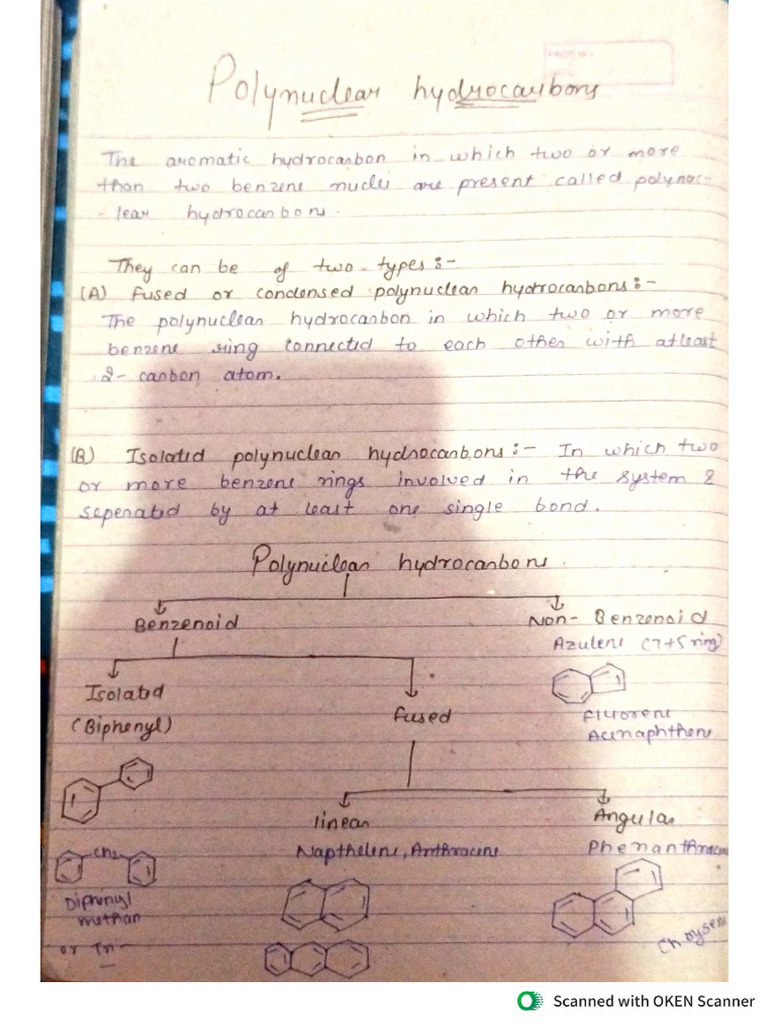 Polynuclear hydrocarbons
The aromatic hydrocarbon in which two or more
than two benzene nuclei are present called polynuc-
- lear hydrocarbons.
They can be of two types :-
(A) Fused or condensed polynuclear hydrocarbons :-
The polynuclear hydrocarbon in which two or more
benzene ring connected to each other with atleast
2- carbon atom.
(B) Isolated polynuclear hydrocarbons :- In which two
or more benzene rings involved in the system &
seperated by at least one single bond.
Polynuclear hydrocarbons.
Benzenoid
Non- Benzenoid
Azulene (7+5 ring)
Isolated
(Biphenyl)
fused
Fluorene
Acenaphthene
linear
Angular
Napthelene, Anthracene
Phenanthracene
CH2
Diphenyl
methan
or
Chrysene
Scanned with OKEN Scanner